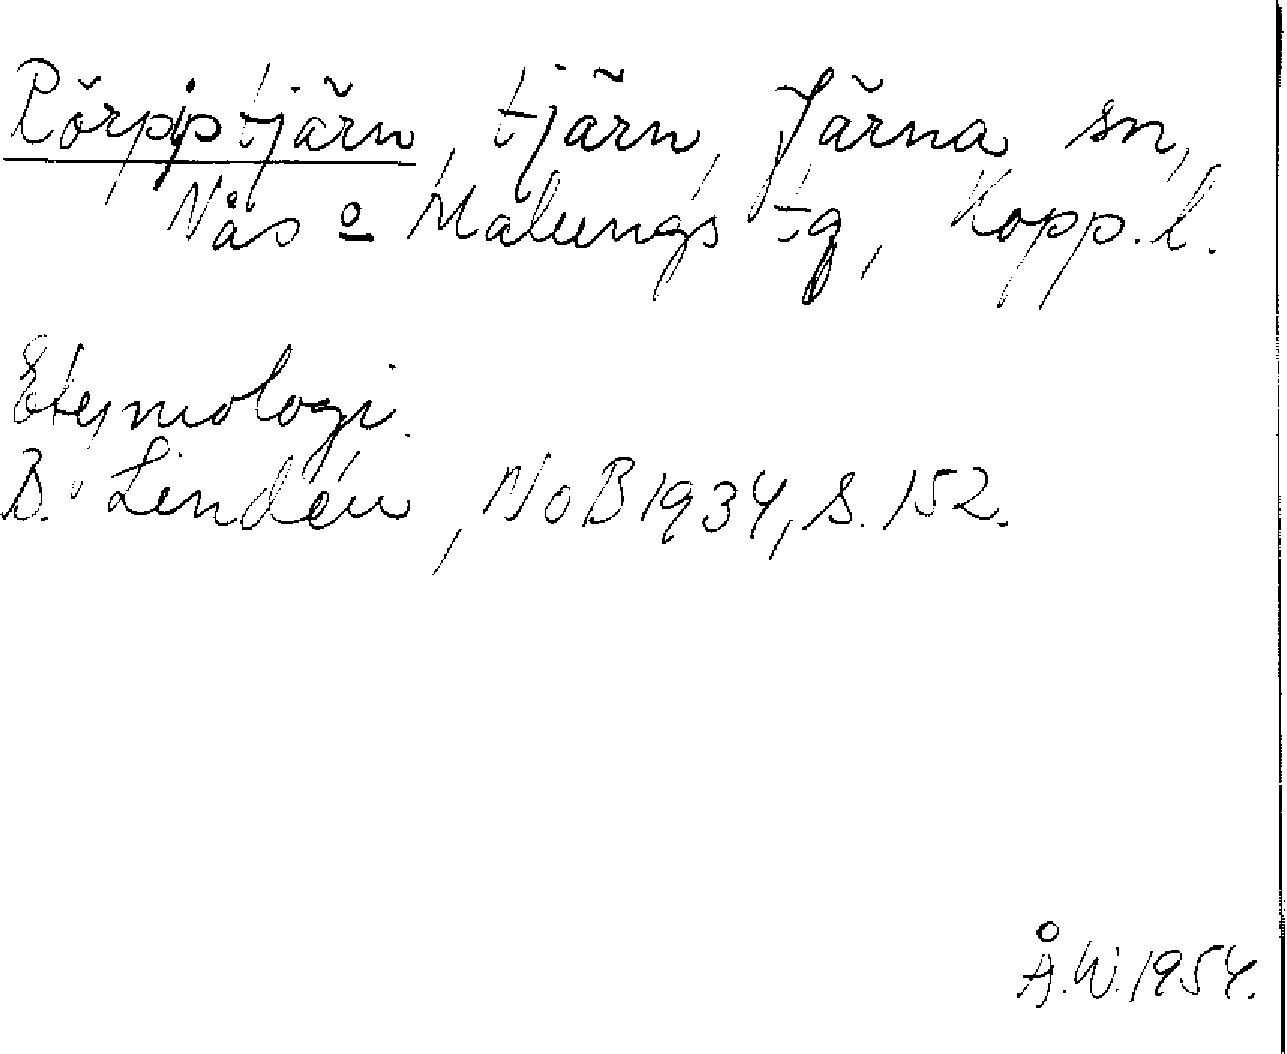 Rörpiptjärn, tjärn, Järna sn,
Nås o Malungs tg, Kopp. l.
Etymologi.
B. Lindén, NoB 1934, s. 152.
Å.W. 1954.